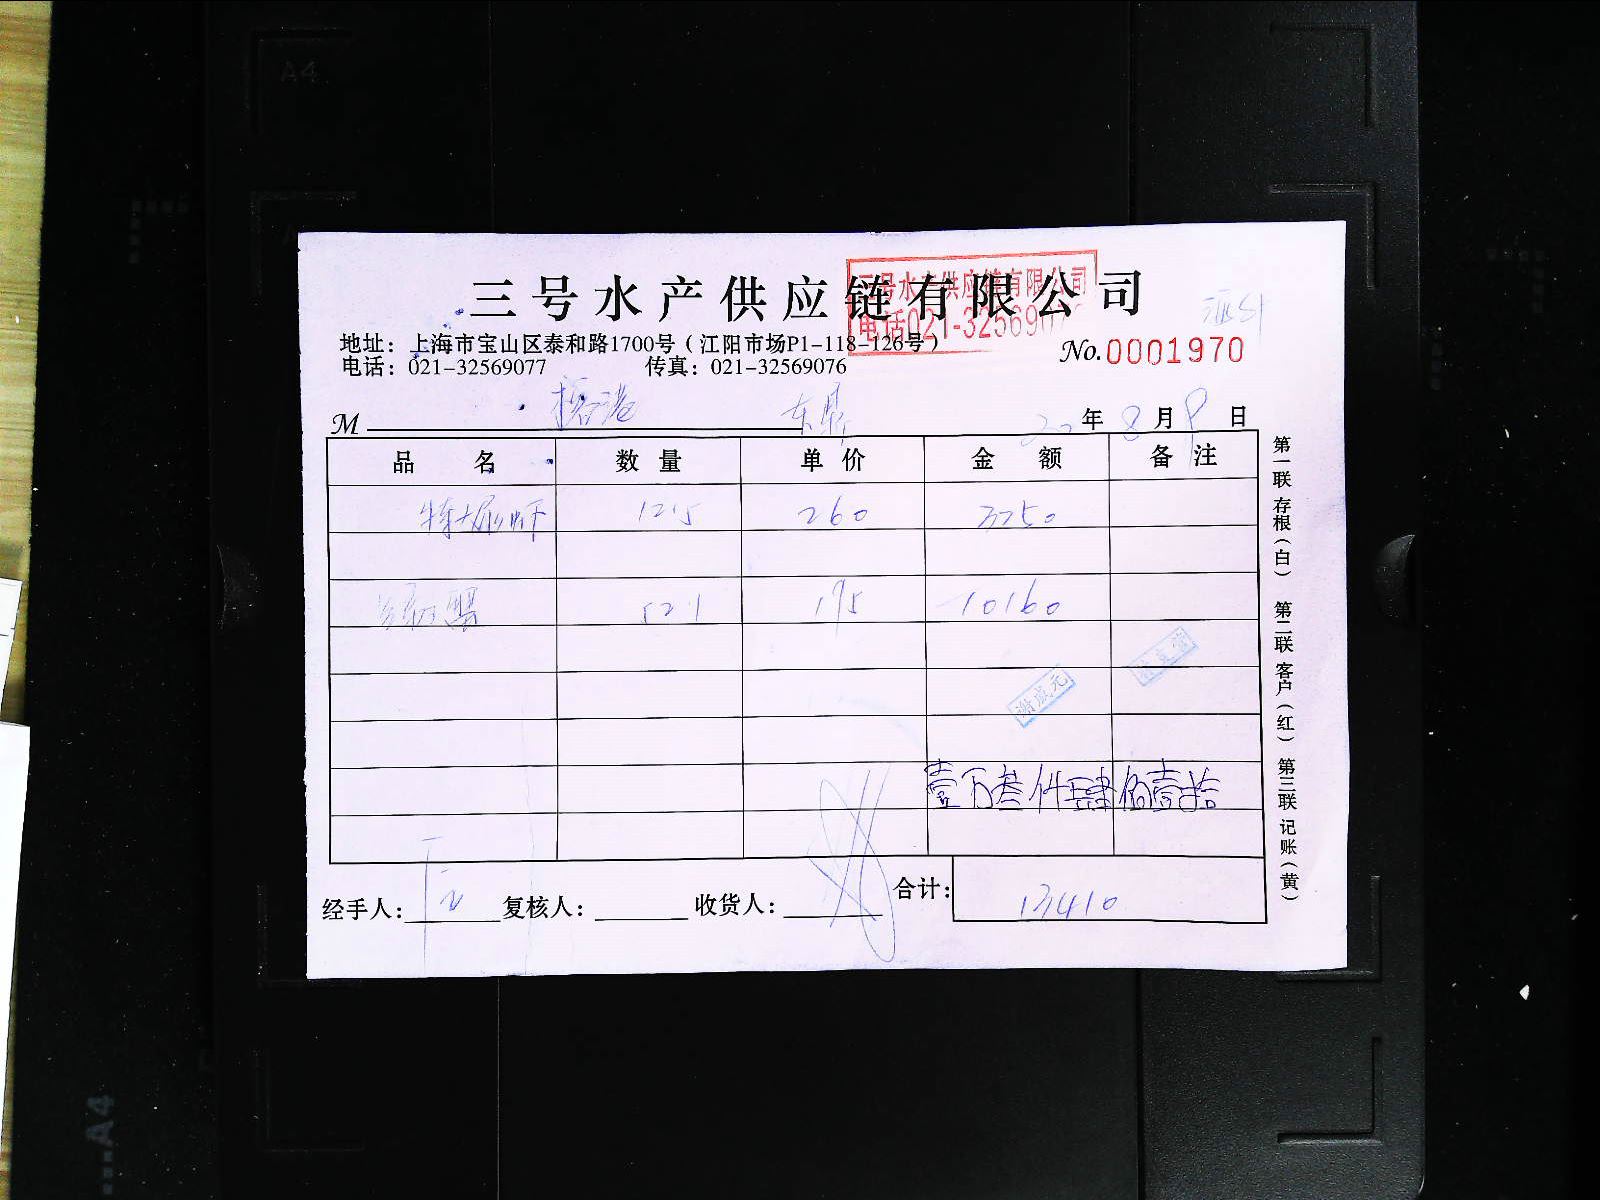 三号水产供应链有限公司
三号水产供应链有限公司
电话021-32569077
地址：上海市宝山区泰和路1700号（江阳市场P1-118-126号）
电话：021-32569077 传真：021-32569076
No.0001970
M
20年8月9日
品名 数量 单价 金额 备注
12.5 260 3250
52.1 195 10160
谢成元
壹万叁仟肆佰壹拾
合计：13410
经手人： 复核人： 收货人：
第一联存根（白） 第二联客户（红） 第三联记账（黄）
A4
A4